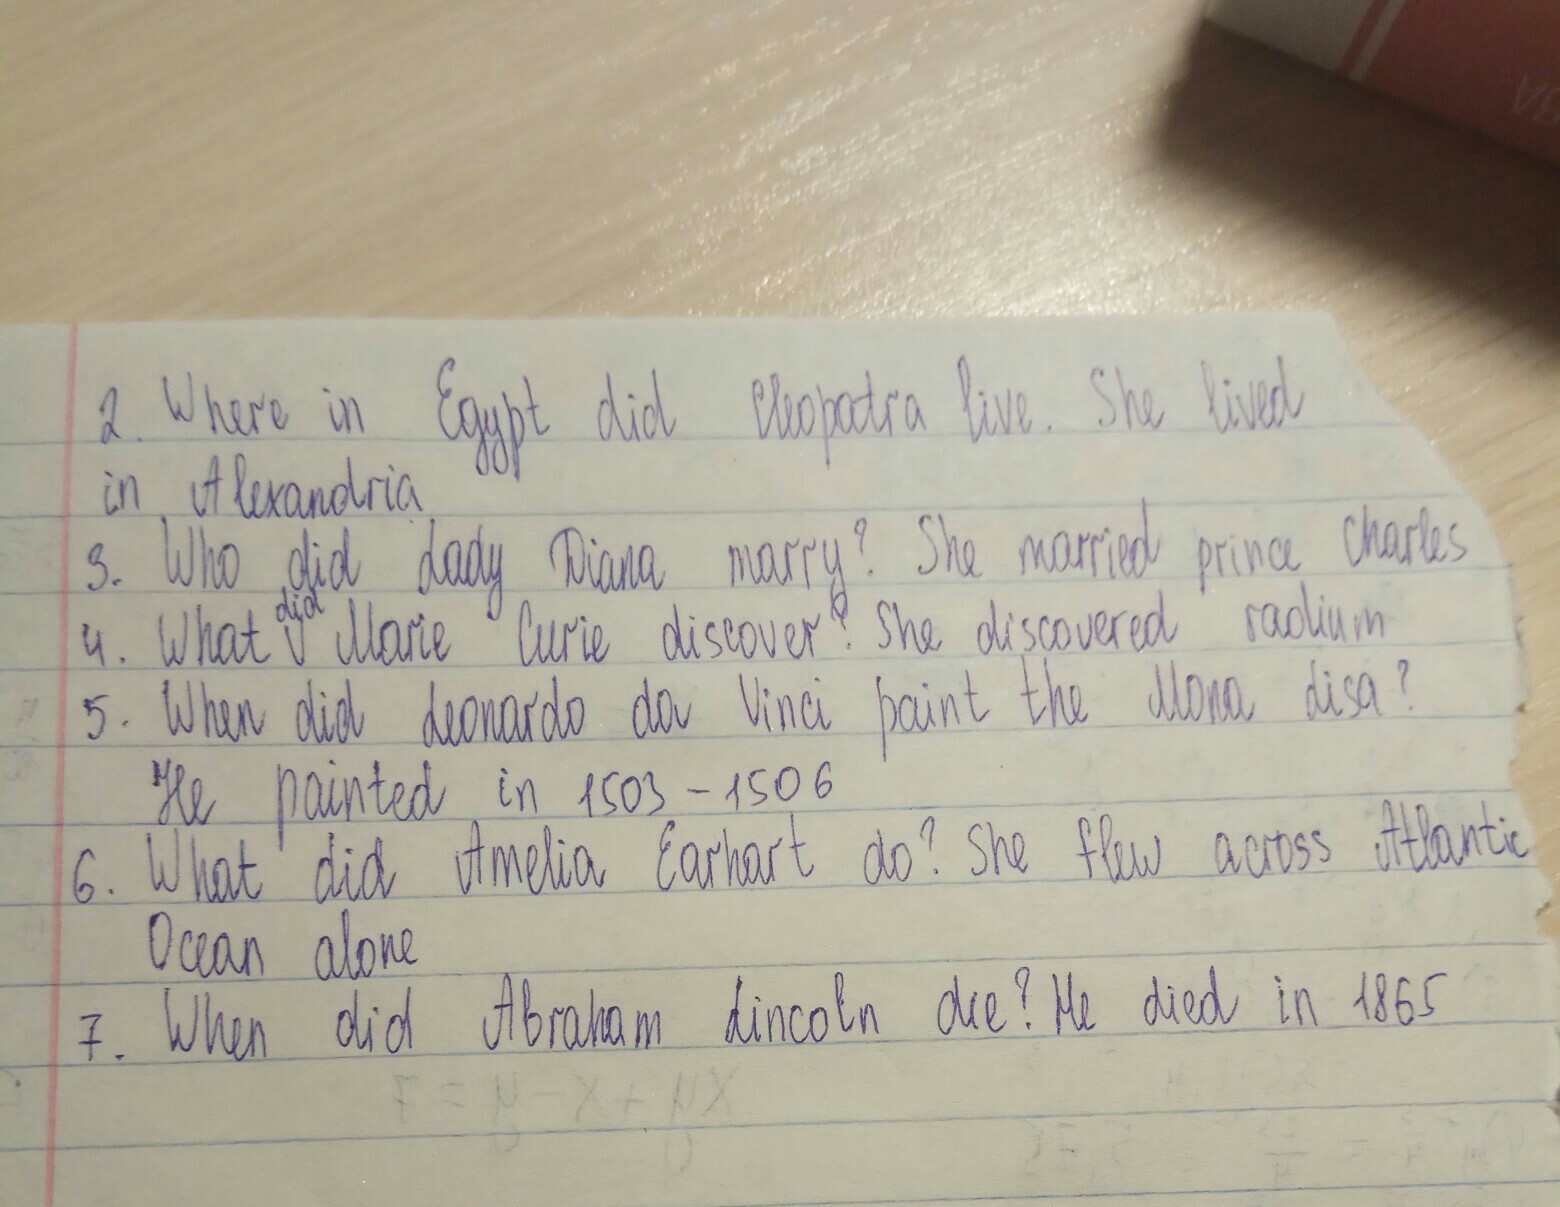 2. Where in Egypt did Cleopatra live. She lived
in Alexandria
3. Who did Lady Diana marry? She married prince Charles
4. What did Marie Curie discover? She discovered radium
5. When did Leonardo da Vinci paint the Mona Lisa?
He painted in 1503-1506
6. What did Amelia Earhart do? She flew across Atlantic
Ocean alone
7. When did Abraham Lincoln die? He died in 1865
xy+x-y=7